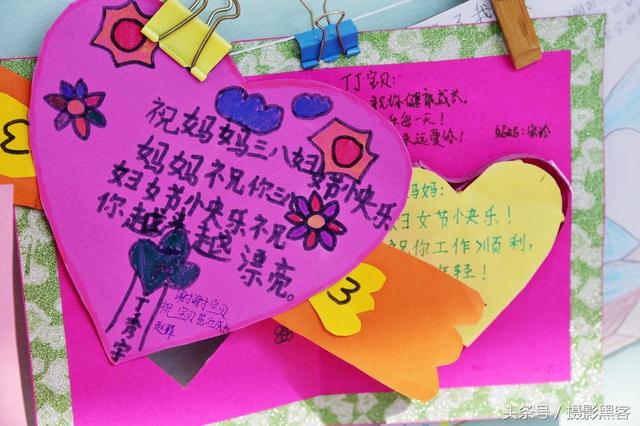 祝妈妈三八妇
妈妈祝你三八节小快乐
妇女节小快乐祝
你越来越漂亮。
丁秀宇
谢谢宝贝
祝宝贝茁壮成长
3
3
丁丁宝贝:
祝你健康成长,
乐每一天!
永远爱你!
妈妈:
妈妈:
妇女节小快乐!
祝你工作顺利,
年轻!
头条号/摄影黑客